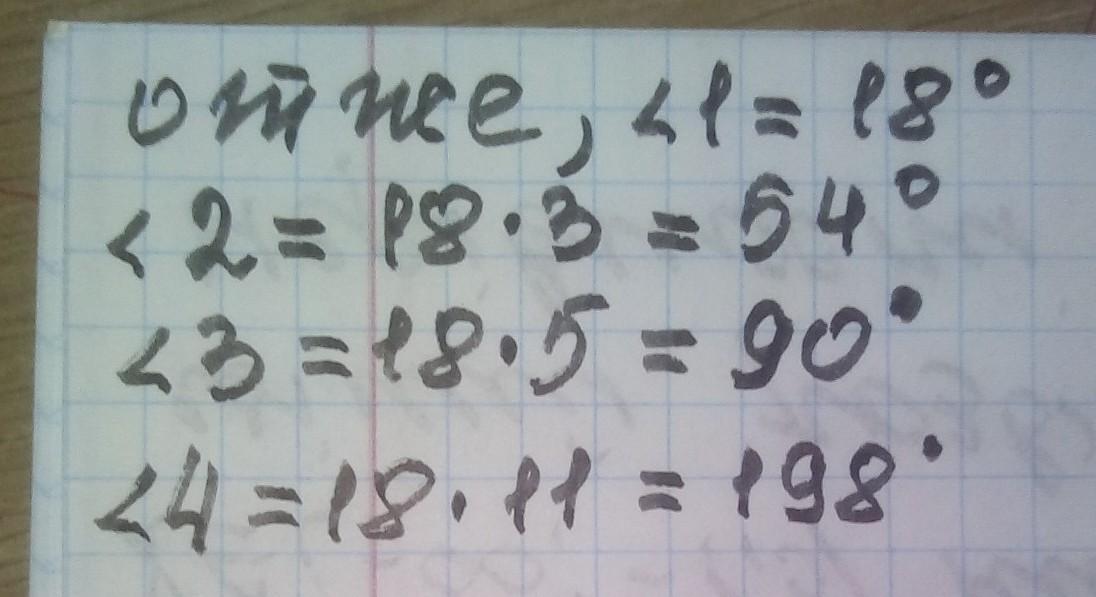 отже, <1 = 18°
<2 = 18·3 = 54°
<3 = 18·5 = 90°
<4 = 18·11 = 198°